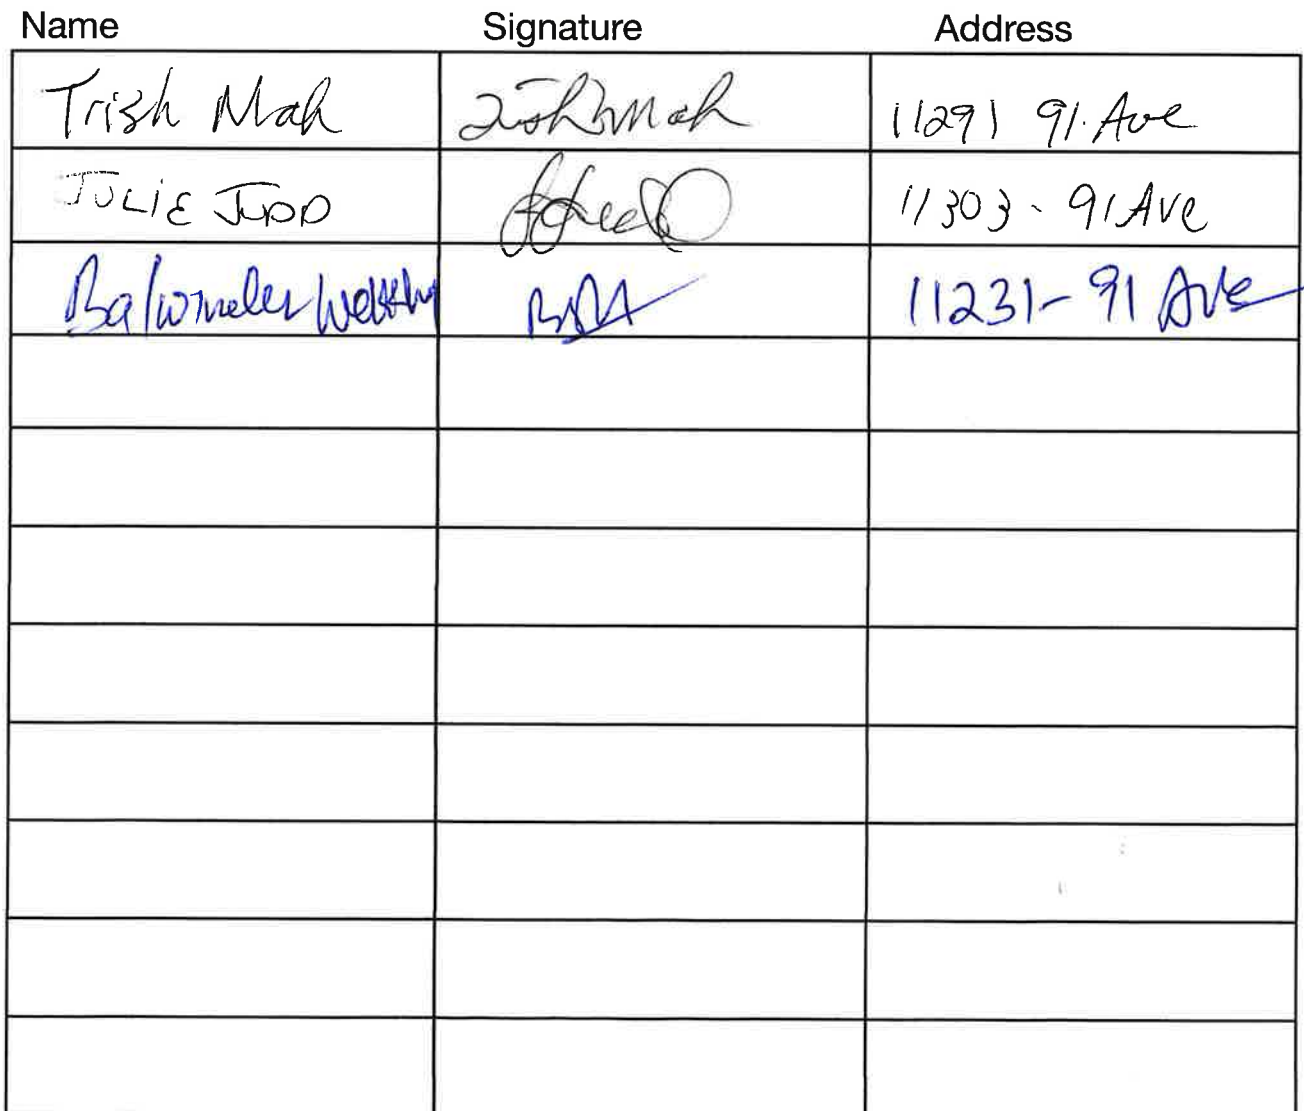 Name Signature Address
Trish Mah Trish Mah 11291 91 Ave
JULIE JUDD 11303 - 91 Ave
Balwinder 11231 - 91 Ave